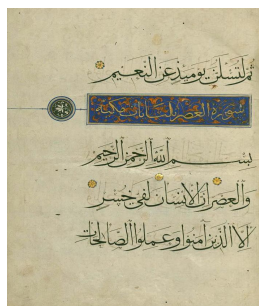 ثُمَّ لَتُسْئَلُنَّ يَوْمَئِذٍ عَنِ النَّعِيمِ
سورة العصر ثلاث ايات مكية
بِسْمِ اللَّهِ الرَّحْمَنِ الرَّحِيمِ
وَالْعَصْرِ اِنَّ الْاِنْسَانَ لَفِي خُسْرٍ
اِلَّا الَّذِينَ آمَنُوا وَعَمِلُوا الصَّالِحَاتِ